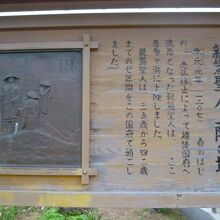 承元元年(一二〇七)春のはじ
め、念仏停止によって越後国府へ
流罪となった親鸞聖人は、ここ
居多ヶ浜に上陸しました。
親鸞聖人は、三五歳から四二歳
までの七年間をこの国府で過ごし
ました。